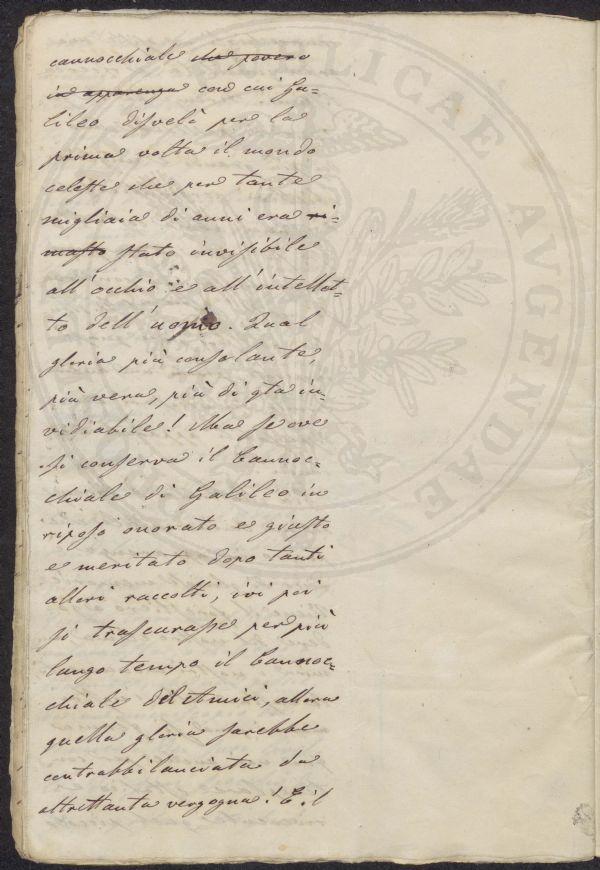 cannocchiale che povero
in apparenza con cui Ga=
lileo disvelò per la
prima volta il mondo
celeste che per tante
migliaia di anni era ri=
masto stato invisibile
all'occhio e all'intellet=
to dell'uomo. Qual
gloria più consolante,
più vera, più di qta in=
vidiabile! Ma se ove
si conserva il Cannoc=
chiale di Galileo in
riposo onorato e giusto
e meritato dopo tanti
allori raccolti, ivi poi
si trascurasse per più
lungo tempo il Cannoc=
chiale del Amici, allora
quella gloria sarebbe
contrabbilanciata da
altrettanta vergogna! E il
PUBLICAE
AVGENDAE